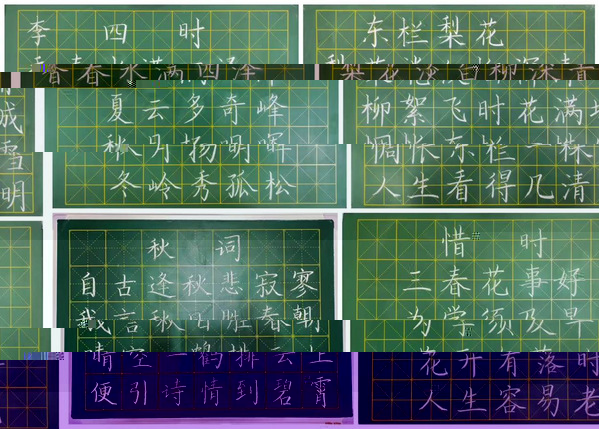 李 四 时
春水满四泽
夏云多奇峰
秋月扬明晖
冬岭秀孤松
东栏梨花
梨花淡白柳深青
柳絮飞时花满城
惆怅东栏一株
人生看得几清
成
雪
明
秋 词
自古逢秋悲寂寥
我言秋日胜春朝
晴空一鹤排云上
便引诗情到碧霄
惜 时
三春花事好
为学须及早
花开有落时
人生容易老